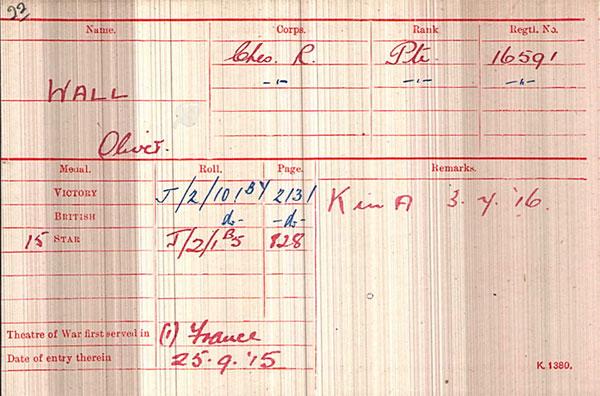 22/
Name. Corps. Rank Regtl. No.
Ches. R. Pte. 16591
-"- -"- -"-
WALL
Oliver.
Medal. Roll. Page. Remarks.
VICTORY J/2/101 B4 2131 K in A 3.7.'16.
BRITISH -do- -do-
15 STAR J/2/1 B5 828
Theatre of War first served in (1) France
Date of entry therein 25.9.'15
K. 1380.